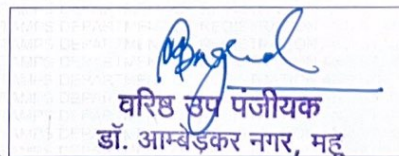 वरिष्ठ उप पंजीयक
डॉ. आम्बेड़कर नगर, महू